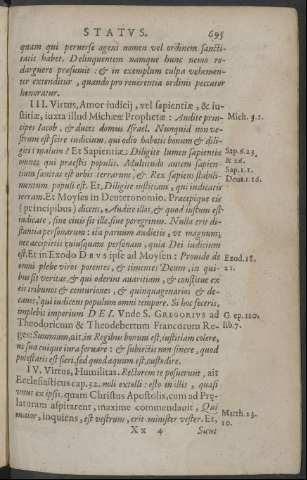 STATVS. 695
quam qui peruerse agens nomen vel ordinem sancti-
tatis habet. Delinquentem namque hunc nemo re-
darguere præsumit: & in exemplum culpa vehemen-
ter extenditur, quando pro reuerentia ordinis peccator
honoratur.
III. Virtus, Amor iudicij, vel sapientiæ, & iu-
stitiæ, iuxta illud Michææ Prophetæ: Audite prin- Mich. 3.1.
cipes Iacob, & duces domus Israel. Nunquid non ve-
strum est scire iudicium, qui odio habetis bonum & dili-
gitis malum? Et Sapientiæ: Diligite lumen sapientiæ Sap. 6.23.
omnes qui præestis populis. Multitudo autem sapien- & 26.
tum sanitas est orbis terrarum, & Rex sapiens stabili- Sap. 1.1.
mentum populi est. Et, Diligite iustitiam, qui iudicatis Deut. 1.16.
terram. Et Moyses in Deuteronomio. Præcepique eis
(principibus) dicens, Audite illos, & quod iustum est
iudicate, siue ciuis sit ille, siue peregrinus. Nulla erit di-
stantia personarum: ita paruum audietis, vt magnum,
nec accipietis cuiusquam personam, quia Dei iudicium
est. Et in Exodo DEVS ipse ad Moysen: Prouide de Exod. 18.
omni plebe viros potentes, & timentes Deum, in qui- 21.
bus sit veritas, & qui oderint auaritiam, & constitue ex
eis tribunos & centuriones, & quinquagenarios & de-
canos, qui iudicent populum omni tempore. Si hoc feceris,
implebis imperium DEI. Vnde S. GREGORIVS ad G. ep. 120.
Theodoricum & Theodebertum Francorum Re- lib. 7.
ges: Summum, ait, in Regibus bonum est, iustitiam colere,
ac sua cuique iura seruare: & subiectis non sinere, quod
potestatis est fieri, sed quod æquum est, custodire.
IV. Virtus, Humilitas. Rectorem te posuerunt, ait
Ecclesiasticus cap. 32. noli extolli: esto in illis, quasi
vnus ex ipsis. quam Christus Apostolis, cum ad Præ-
laturam aspirarent, maxime commendauit, Qui
maior, inquiens, est vestrum, erit minister vester. Et, Matth. 23.
10.
Xx 4 Sicut